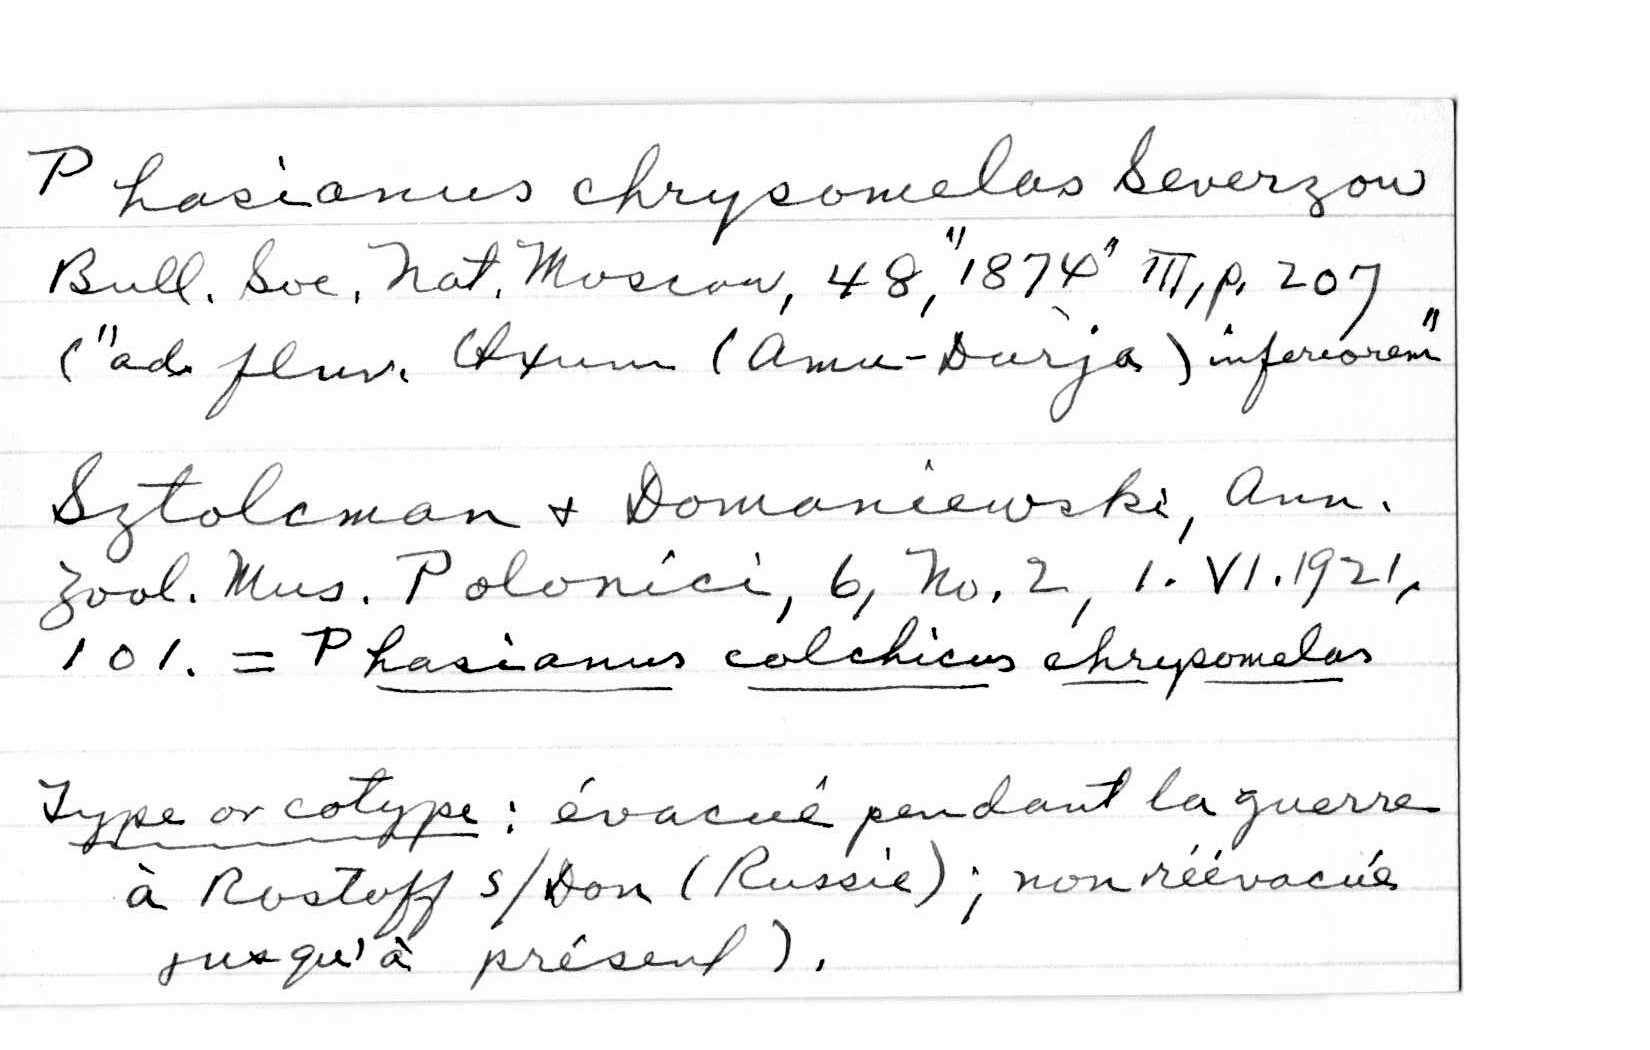 Phasianus chrysomelas Severzow
Bull. Soc. Nat. Moscow, 48, "1874" III, p. 207
("ad. fluv. Oxum (Amu-Darja) inferiorem"
Sztolcman + Domaniewski, Ann.
Zool. Mus. Polonici, 6, No. 2, 1. VI. 1921,
101. = Phasianus colchicus chrysomelas
Type or cotype: évacué pendant la guerre
à Rostoff s/Don (Russie); non réévacué
jusqu'à présent).